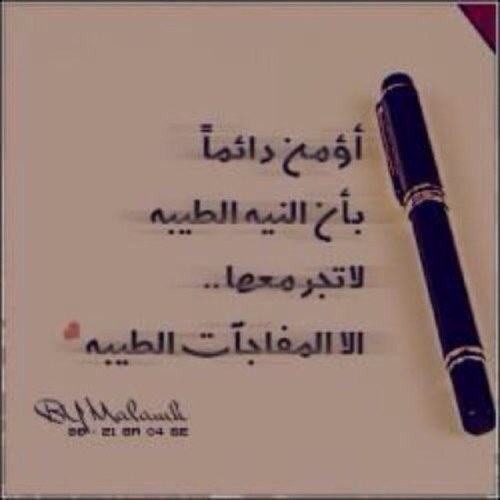 أؤمن دائماً
بأن النيه الطيبه
لاتجر معها..
الا المفاجآت الطيبه